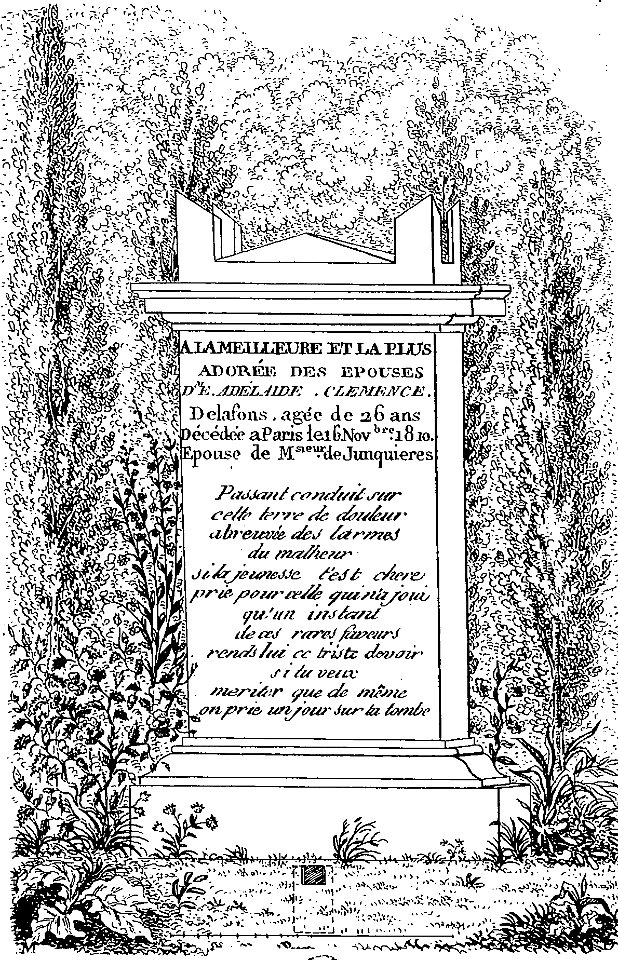 A LA MEILLEURE ET LA PLUS
ADORÉE DES EPOUSES
D^lle. ADELAIDE . CLEMENCE .
Delafons . agée de 26 ans
Décédée a Paris le 16 Nov^bre. 1810.
Epouse de M^sieur. de Junquieres
Passant conduit sur
cette terre de douleur
abreuvée des larmes
du malheur
si la jeunesse t'est chere
prie pour celle qui n'a joui
qu'un instant
de ces rares faveurs
rends lui ce triste devoir
si tu veux
meriter que de même
on prie un jour sur ta tombe